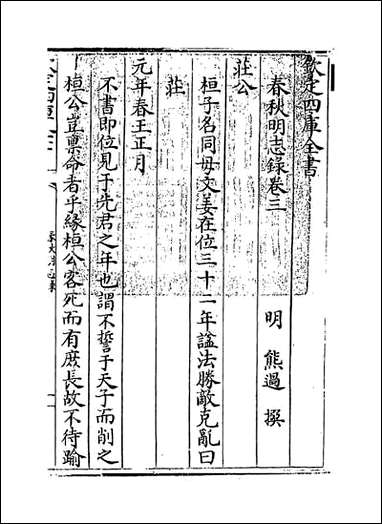 欽定四庫全書
春秋明志錄卷三
明 熊過 撰
莊公
桓子名同母文姜在位三十二年諡法勝敵克亂曰
莊
元年春王正月
不書即位見于先君之年也謂不誓于天子而削之
桓公豈稟命者乎緣桓公客死而有庶長故不待踰